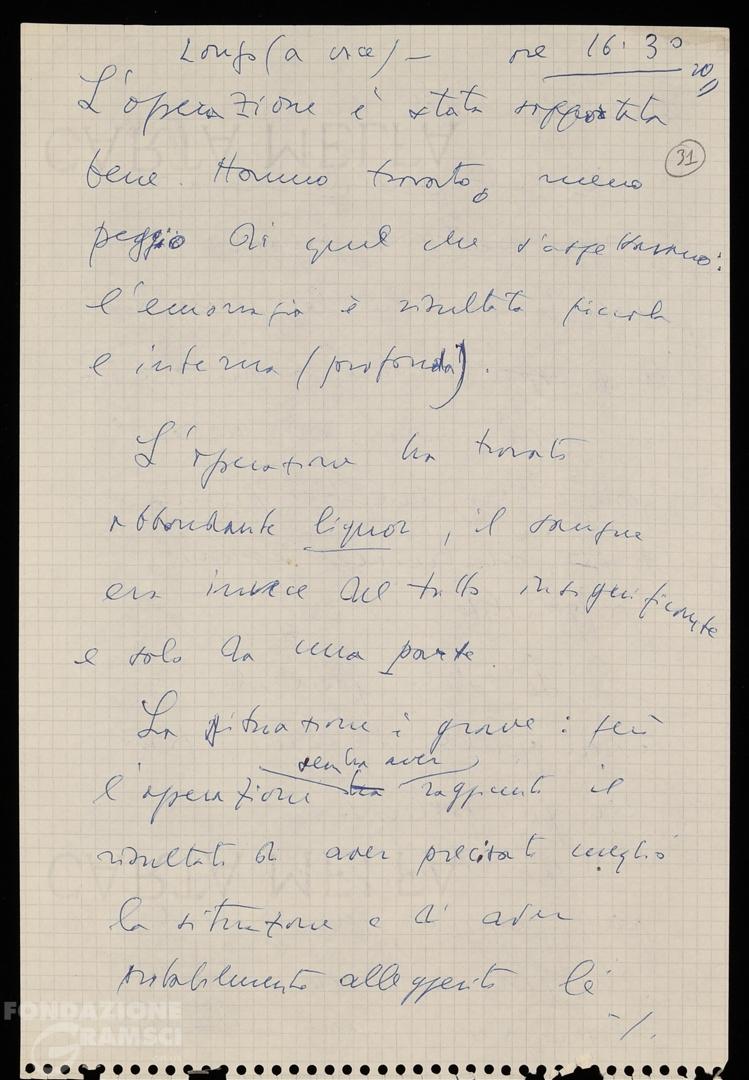 Longo (a voce) — ore 16.30
20
L'operazione è stata sopportata
31
bene. Hanno trovato meno
peggio di quel che s'aspettavano:
l'emorragia è risultata piccola
e interna (profonda).
L'operazione ha trovato
abbondante liquor, il sangue
era invece del tutto insignificante
e solo da una parte.
La situazione è grave: però
sembra aver
l'operazione ha raggiunto il
risultato di aver precisato meglio
la situazione e di aver
probabilmente alleggerito le
./.
FONDAZIONE
GRAMSCI